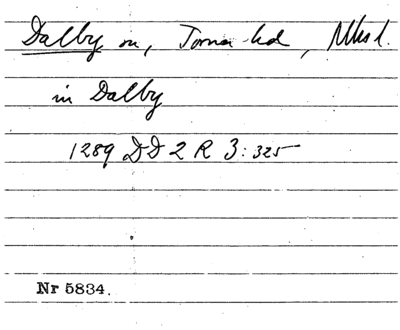 Dalby sn, Torna hd, Mhsl.
in Dalby
1289 DD 2 R 3:325
Nr 5834.